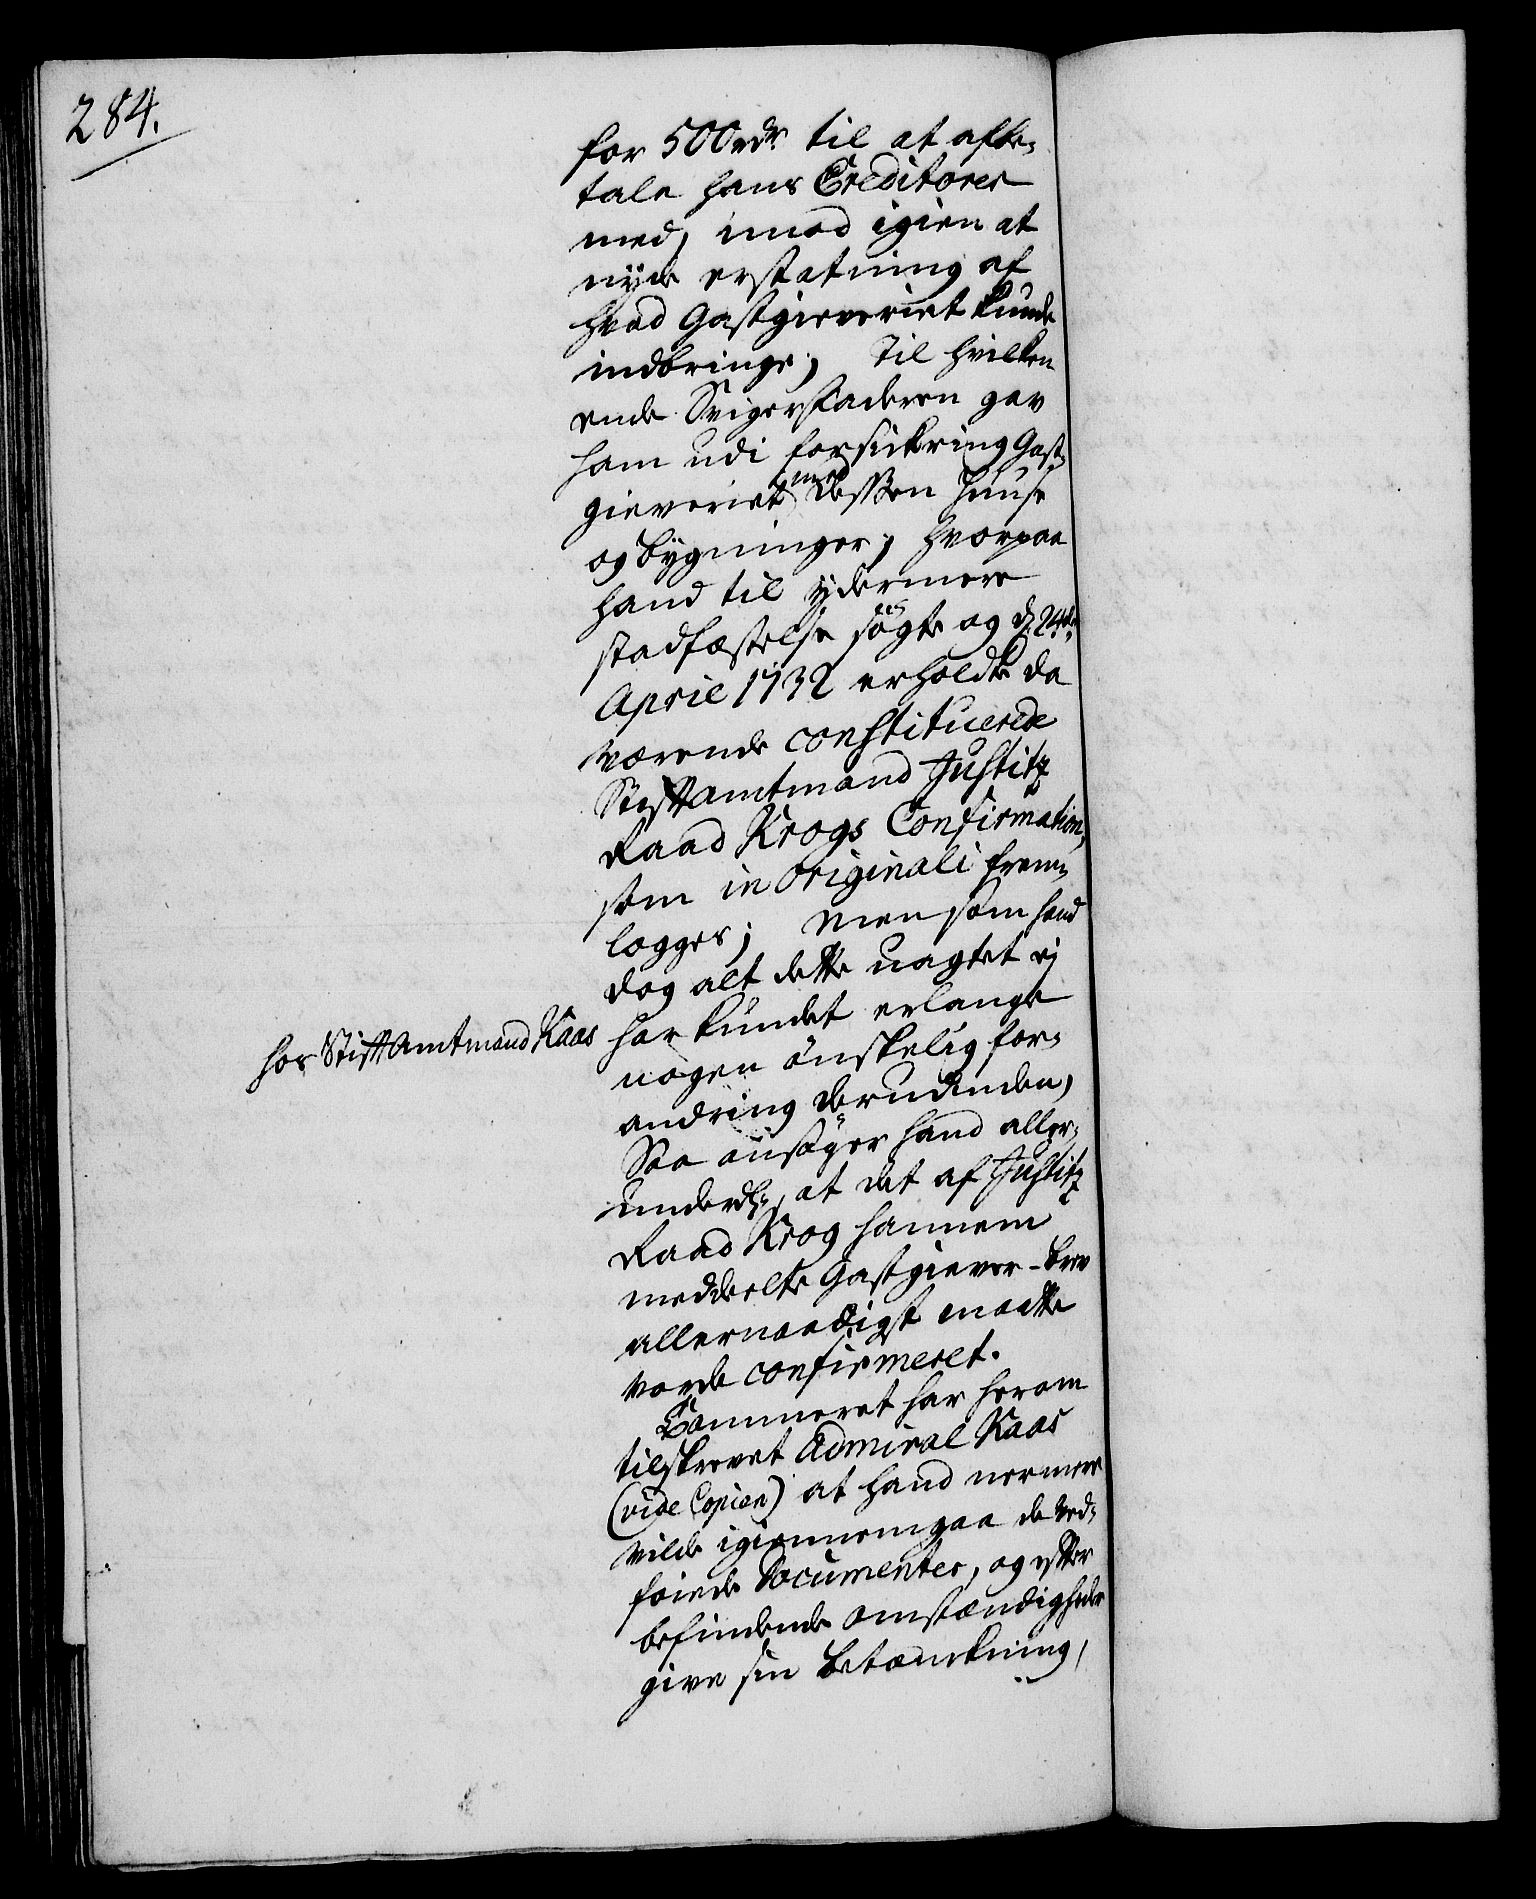 284.
for 500 rdr. til at afbe-
tale hans Creditorer
med, imod igien at
nyde erstatning af
hvad Gastgieveriet kunde
indbringe; Til hvilken
ende Svigerfaderen gav
ham udi forsickring Gast-
gieveriet med dessen Huuse
og bygninger; hvorpaa
hand til ydermere
stadfæstelse søgte og d. 24de
April 1732 erholdte da
værende constituerede
Stiftamtmand Justitz
Raad Krogs Confirmation,
som in originali frem-
legges; Men som hand
dog alt dette uagtet ej
hos Stiftamtmand Kaas
har kundet erlange
nogen ønskelig for-
andring derudinden,
Saa ansøger hand aller-
underd:, at det af Justitz
Raad Krog hannem
meddeelte Gastgiever-brev
allernaadigst maatte
vorde confirmeret.
Cammeret har herom
tilskrevet Admiral Kaas
(vide Copien) at hand nermere
vilde igiennemgaa de ved-
føiede Documenter, og efter
befindende omstændigheder
give sin betænkning,